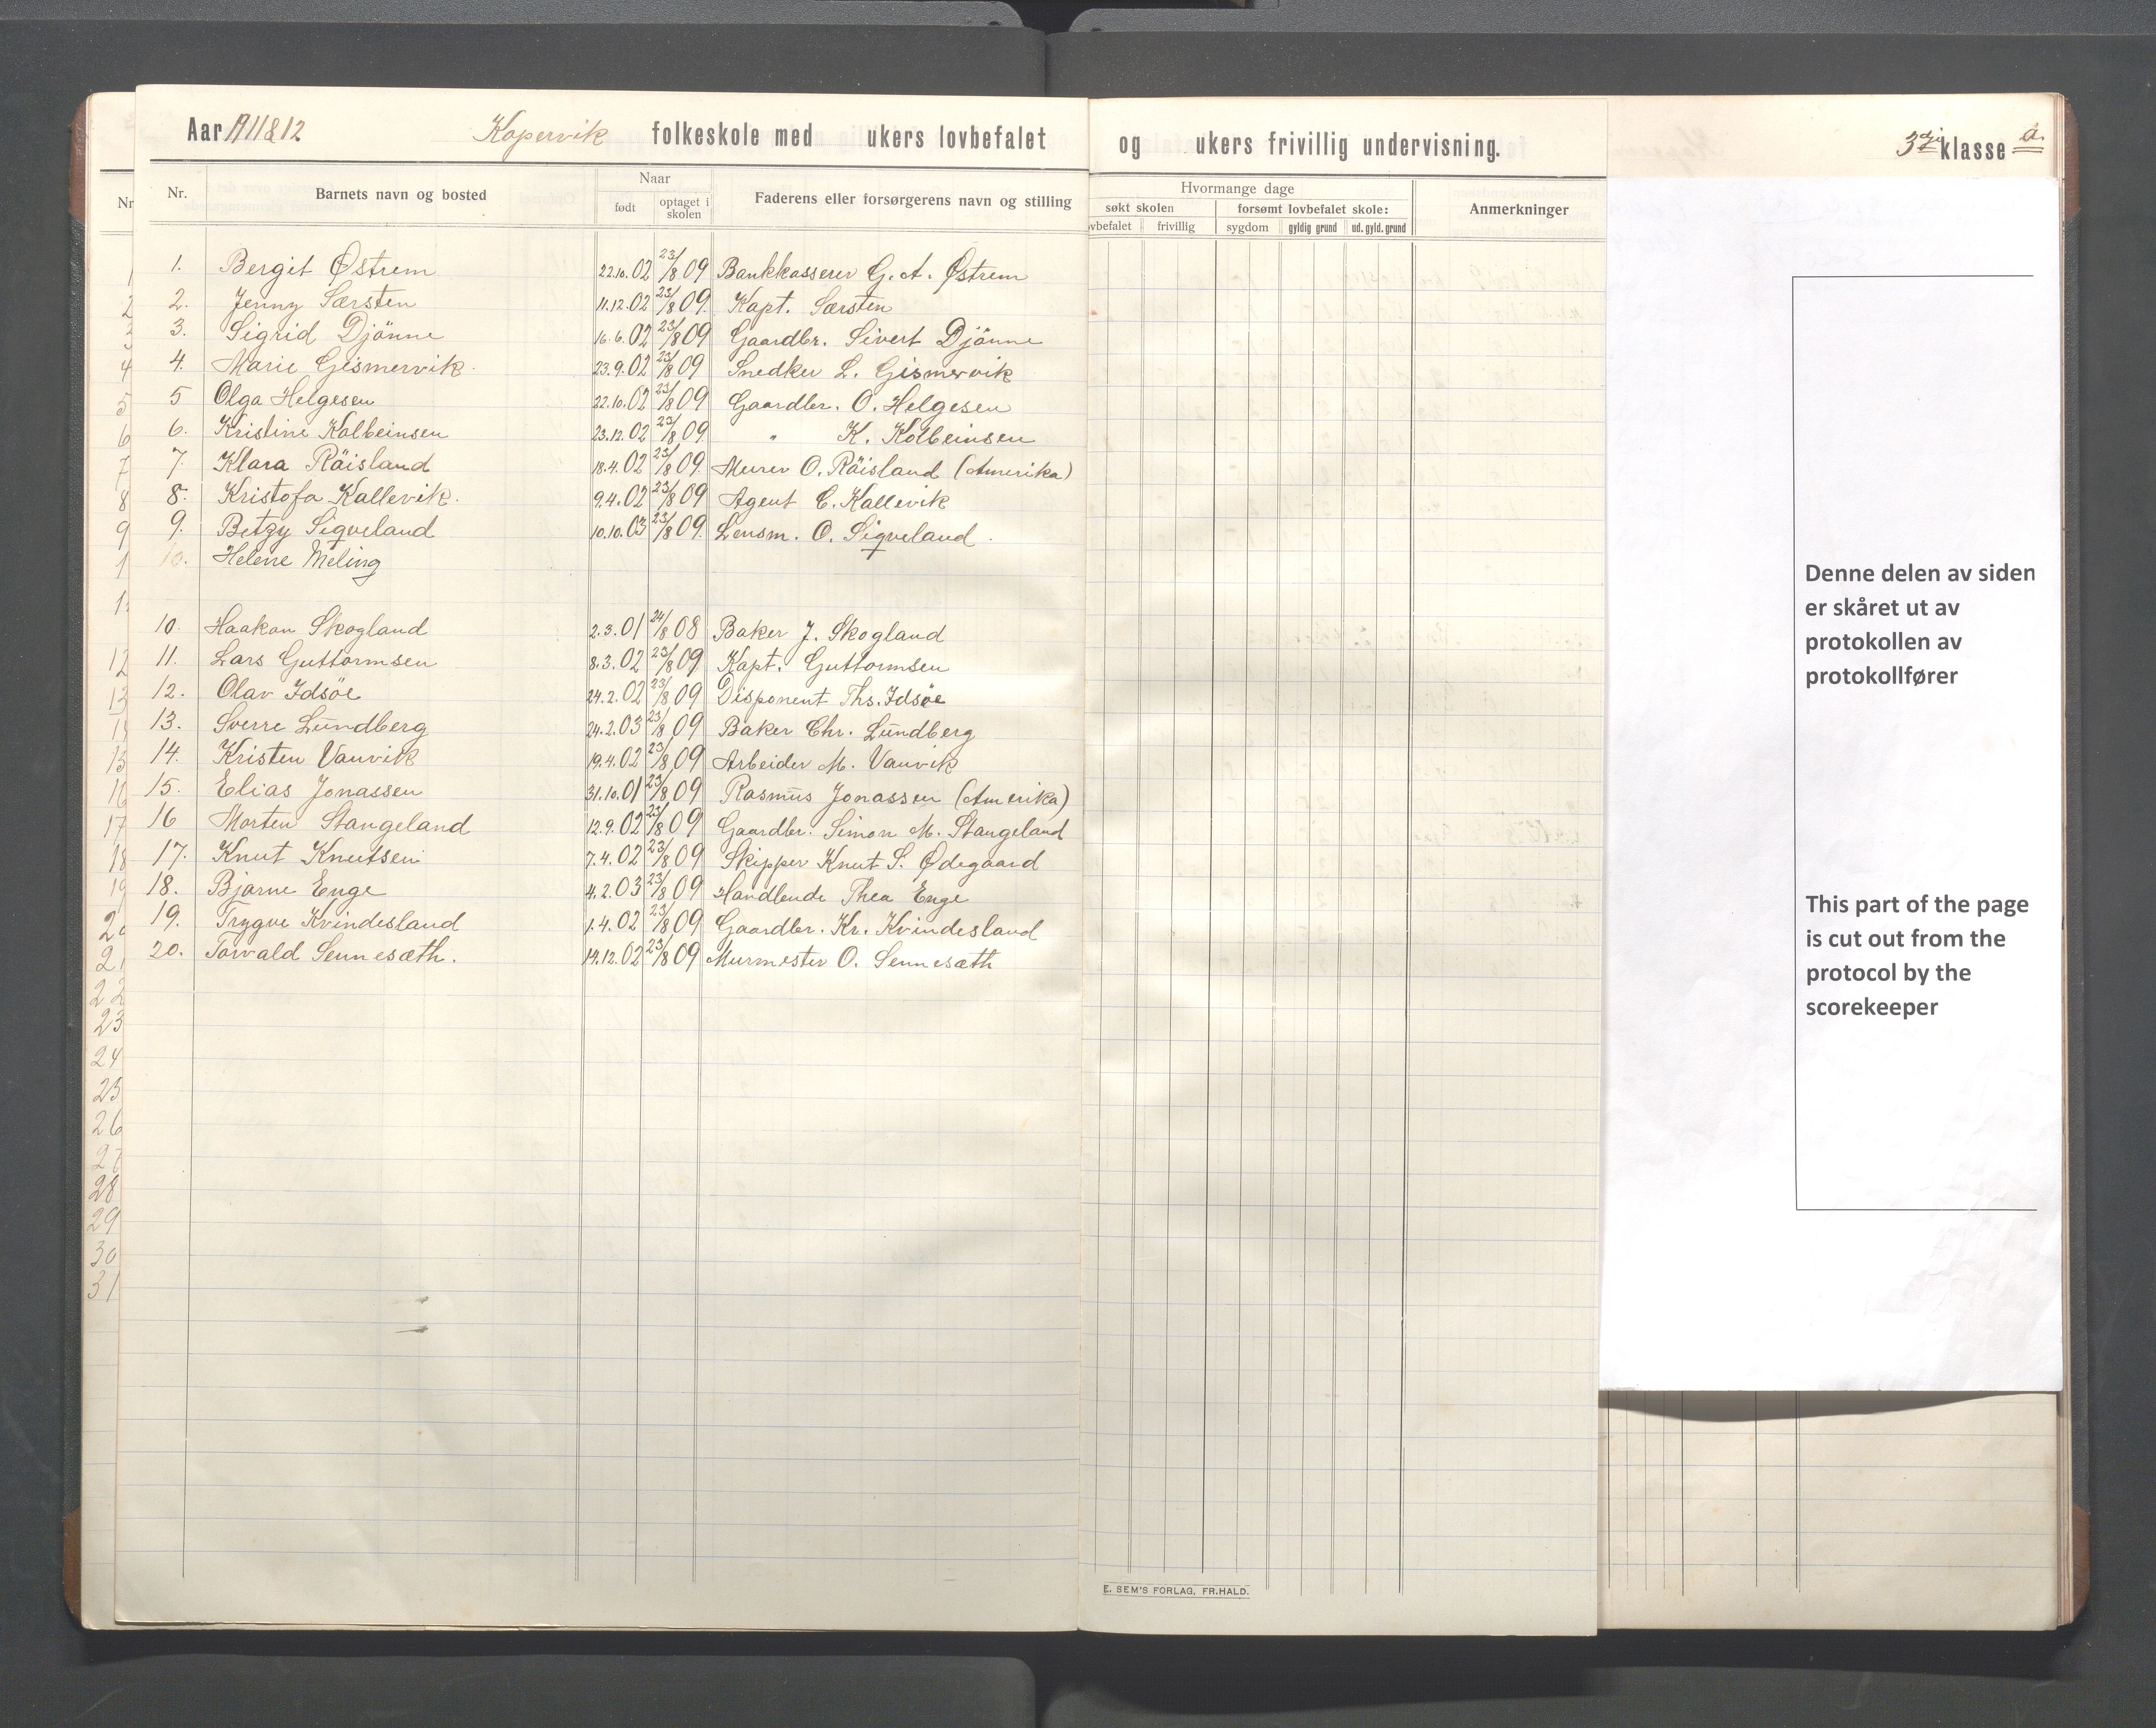 Aar 1911 & 12 Kopervik folkeskole med ukers lovbefalet og ukers frivillig undervisning. 3dj klasse a.
Nr. Barnets navn og bosted Naar født optaget i skolen Faderens eller forsørgerens navn og stilling Hvormange dage søkt skolen forsømt lovbefalet skole: Anmerkninger
vbefalet frivillig sygdom gyldig grund ud. gyld. grund
1. Bergit Østrem 22.10.02 23/8 09 Bankkasserer G. A. Østrem
2. Jenny Særsten 11.12.02 23/8 09. Kapt. Særsten
3. Sigrid Djönne 16.6.02 23/8 09 Gaardbr. Sivert Djönne
4. Marie Gismervik. 23.9.02 23/8 09 Snedker L. Gismervik
5 Olga Helgesen 22.10.02 23/8 09 Gaardbr. O. Helgesen
6. Kristine Kolbeinsen 23.12.02 23/8 09. " K. Kolbeinsen
7. Klara Röisland 18.4.02 23/8 09. Murer O. Röisland (Amerika)
8. Kristofa Kallevik. 9.4.02 23/8 09 Agent C. Kallevik
9. Betzy Sigveland 10.10.03 23/8 09. Lensm. O. Sigveland.
10. Helene Meling
10. Haakon Skogland 2.3.01 24/8 08 Baker J. Skogland
11. Lars Guttormsen 8.3.02 23/8 09 Kapt. Guttormsen
12. Olav Idsöe 24.2.02 23/8 09 Disponent Ths. Idsöe
13. Sverre Lundberg 24.2.03 23/8 09 Baker Chr. Lundberg
14. Kristen Vanvik 19.4.02 23/8 09 Arbeider M. Vanvik
15. Elias Jonassen 31.10.01 23/8 09 Rasmus Jonassen (Amerika)
16 Morten Stangeland 12.9.02 23/8 09 Gaardbr. Simon M. Stangeland
17. Knut Knutsen 7.4.02 23/8 09 Skipper Knut S. Ødegaard
18. Bjarne Enge 4.2.03 23/8 09 Handlende Thea Enge
19. Trygve Kvindesland 1.4.02 23/8 09 Gaardbr. Kr. Kvindesland
20. Torvald Sennesæth. 14.12.02 23/8 09 Murmester O. Sennesæth
E. SEM'S FORLAG, FR.HALD.
Nr
1
2
3
4
5
6
7
8
9
1
1
12
13
17
18
22
23
24
25
26
27
28
29
30
31
Denne delen av siden
er skåret ut av
protokollen av
protokollfører
This part of the page
is cut out from the
protocol by the
scorekeeper